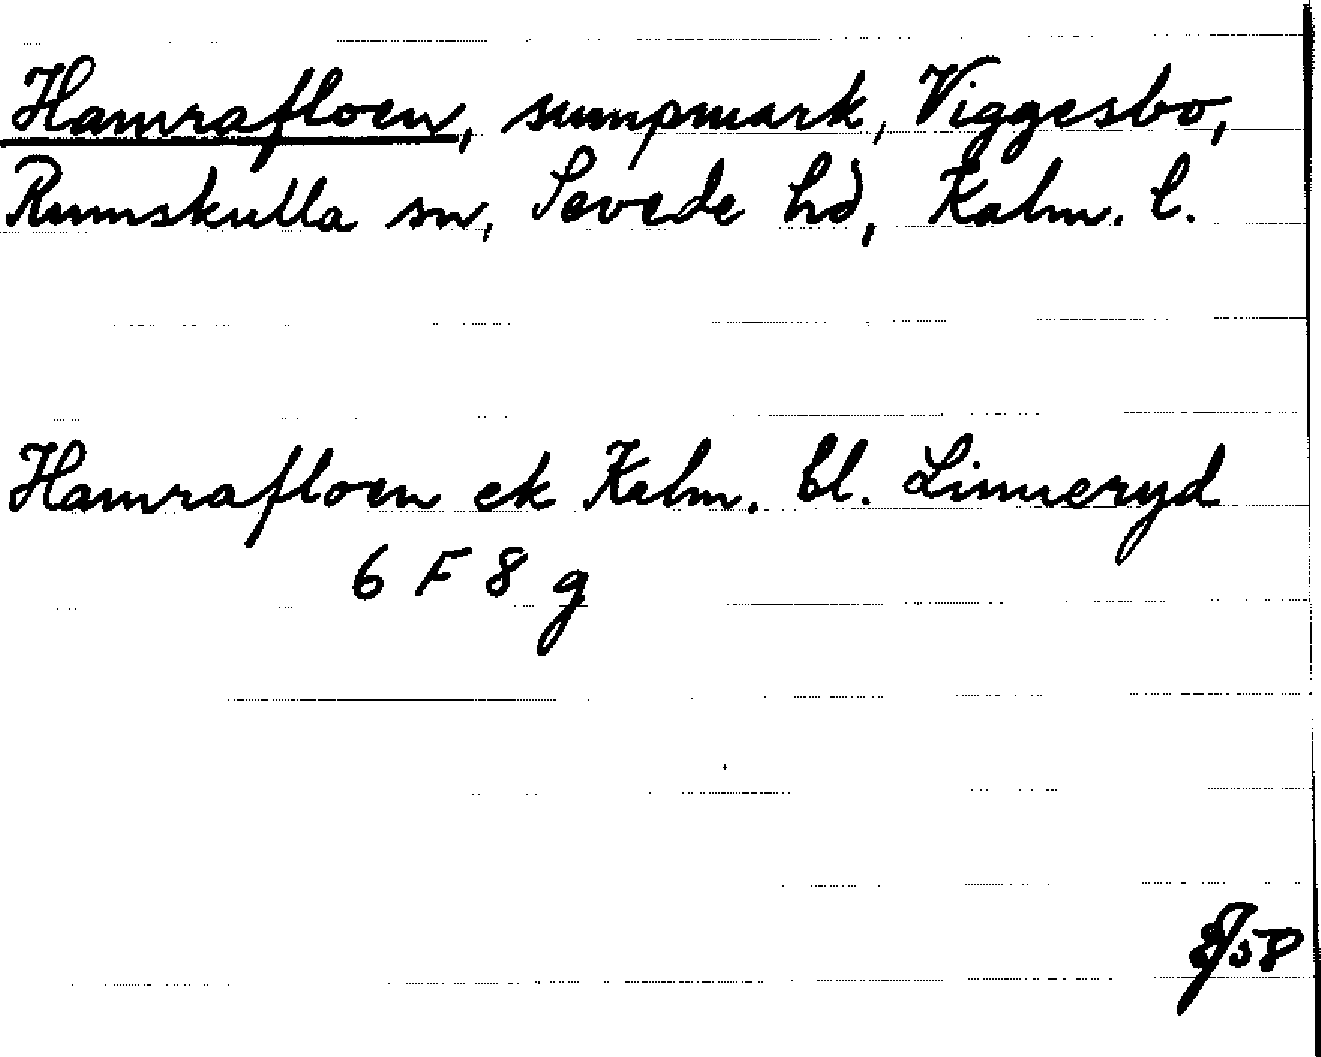 Hamrafloen, sumpmark, Viggesbo,
Rumskulla sn, Sevede hd, Kalm. l.
Hamrafloen ek Kalm. bl. Linneryd
6 F 8 g